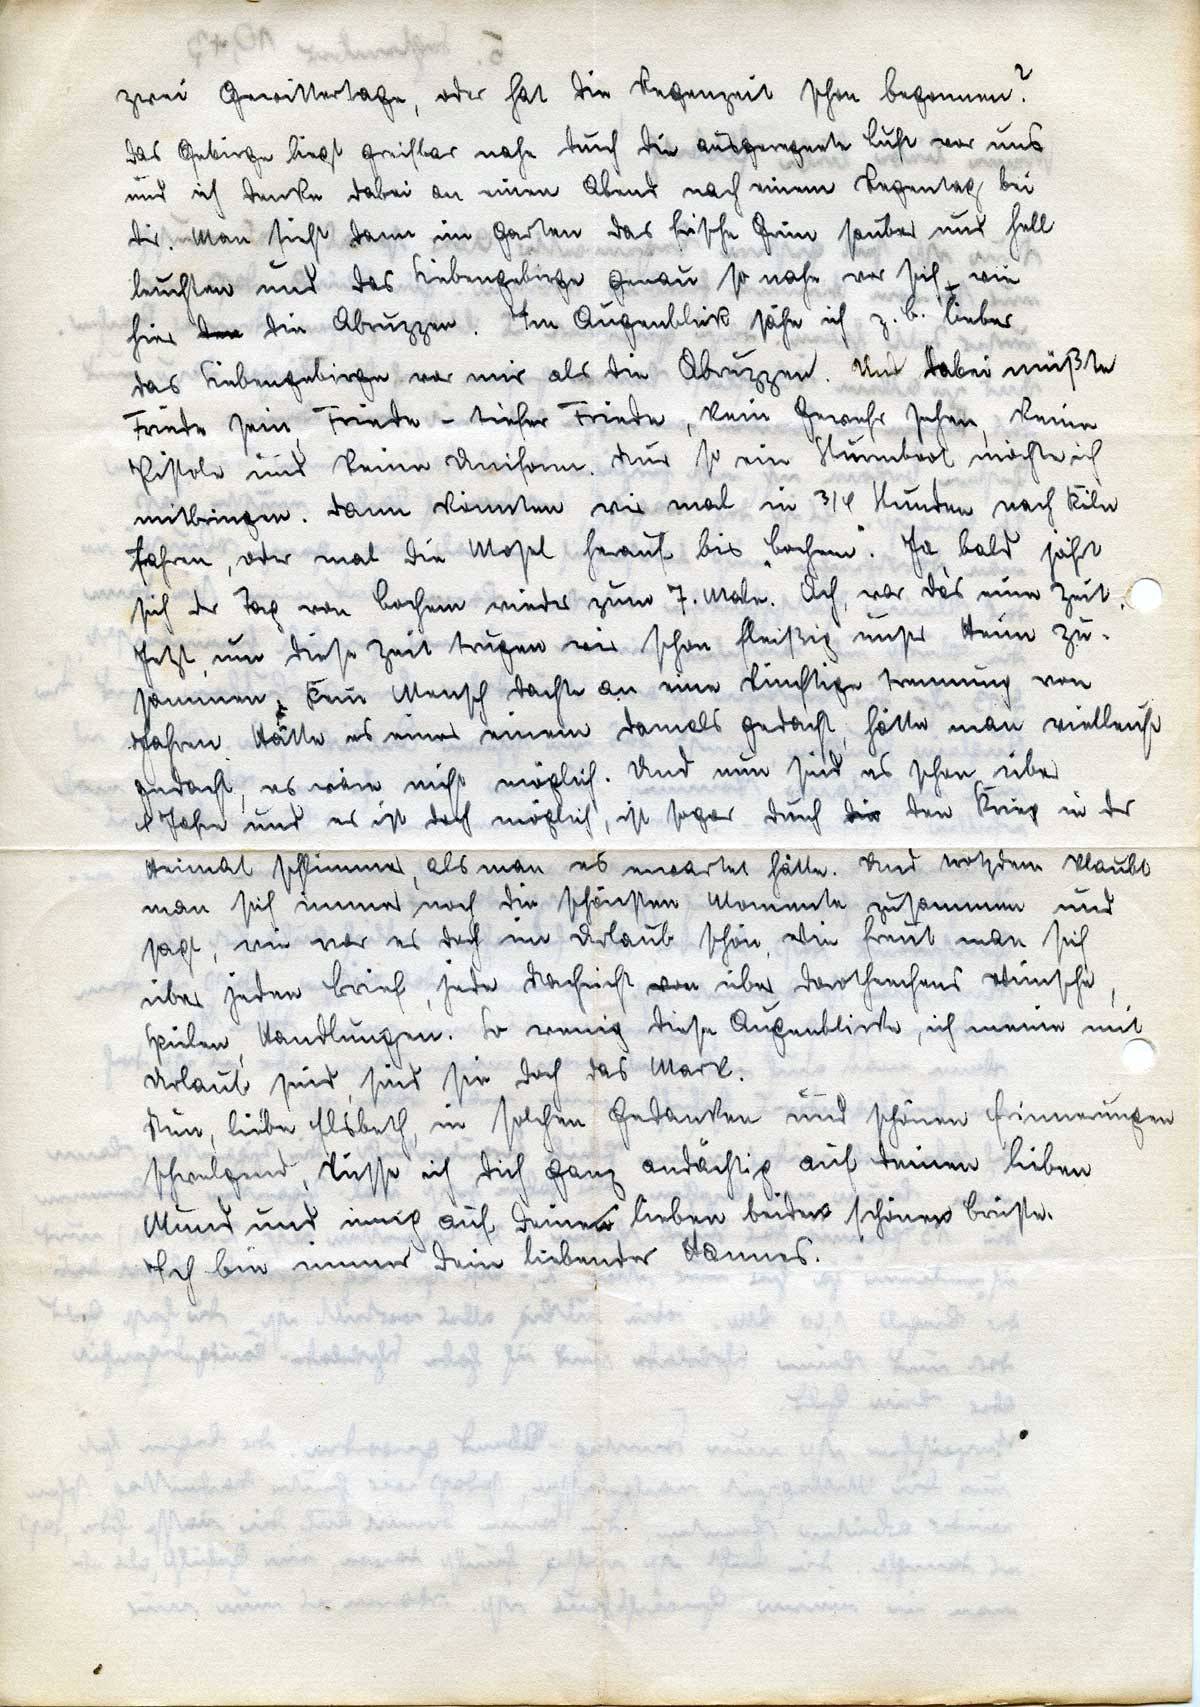 zwei Gewittertage, oder hat die Regenzeit schon begonnen?
Das Gebirge liegt greifbar nahe durch die ausgeregnete Luft vor uns
und ich denke dabei an einen Abend nach einem Regentag bei
dir. Man sieht dann im Garten das frische Grün sauber und hell
leuchten und das Siebengebirge genau so nahe vor sich wie
hier die Abruzzen. Im Augenblick sähe ich z.B. lieber
das Siebengebirge vor mir als die Abruzzen. Und dabei müßte
Friede sein, Friede - tiefer Friede, kein Gewehr sehen, keine
Pistole und keine Uniform. Nur so ein Sturmboot möchte ich
mitbringen. Dann könnten wir mal in 3/4 Stunden nach Köln
fahren, oder mal die Mosel herauf bis "Cochem". Ja, bald jährt
sich der Tag von Cochem wieder zum 7. Male. Ach, war das eine Zeit.
Jetzt, um diese Zeit trugen wir schon fleißig unser Heim zu-
sammen. Kein Mensch dachte an eine künftige Trennung von
Jahren. Hätte es einer einem damals gedacht, hätte man vielleicht
gedacht, es wäre nicht möglich. Und nun sind es schon über
4 Jahre und es ist doch möglich, ist sogar durch den Krieg in der
Heimat schlimmer, als man es erwartet hätte. Und trotzdem klaubt
man sich immer noch die schönsten Momente zusammen und
sagt, wie war es doch im Urlaub schön, wie freut man sich
über jeden Brief, jede Nachricht über Dorotheechens Wünsche,
Spielen, Handlungen. So wenig diese Augenblicke, ich meine mit
Urlaub sind, sind sie doch das Mark.
Nun, liebe Elsbeth, in solchen Gedanken und schönen Erinnerungen
schwelgend, küsse ich dich ganz andächtig auf deinen lieben
Mund und innig auf deine lieben beiden schönen Brüste.
Ich bin immer dein liebender Hannes.